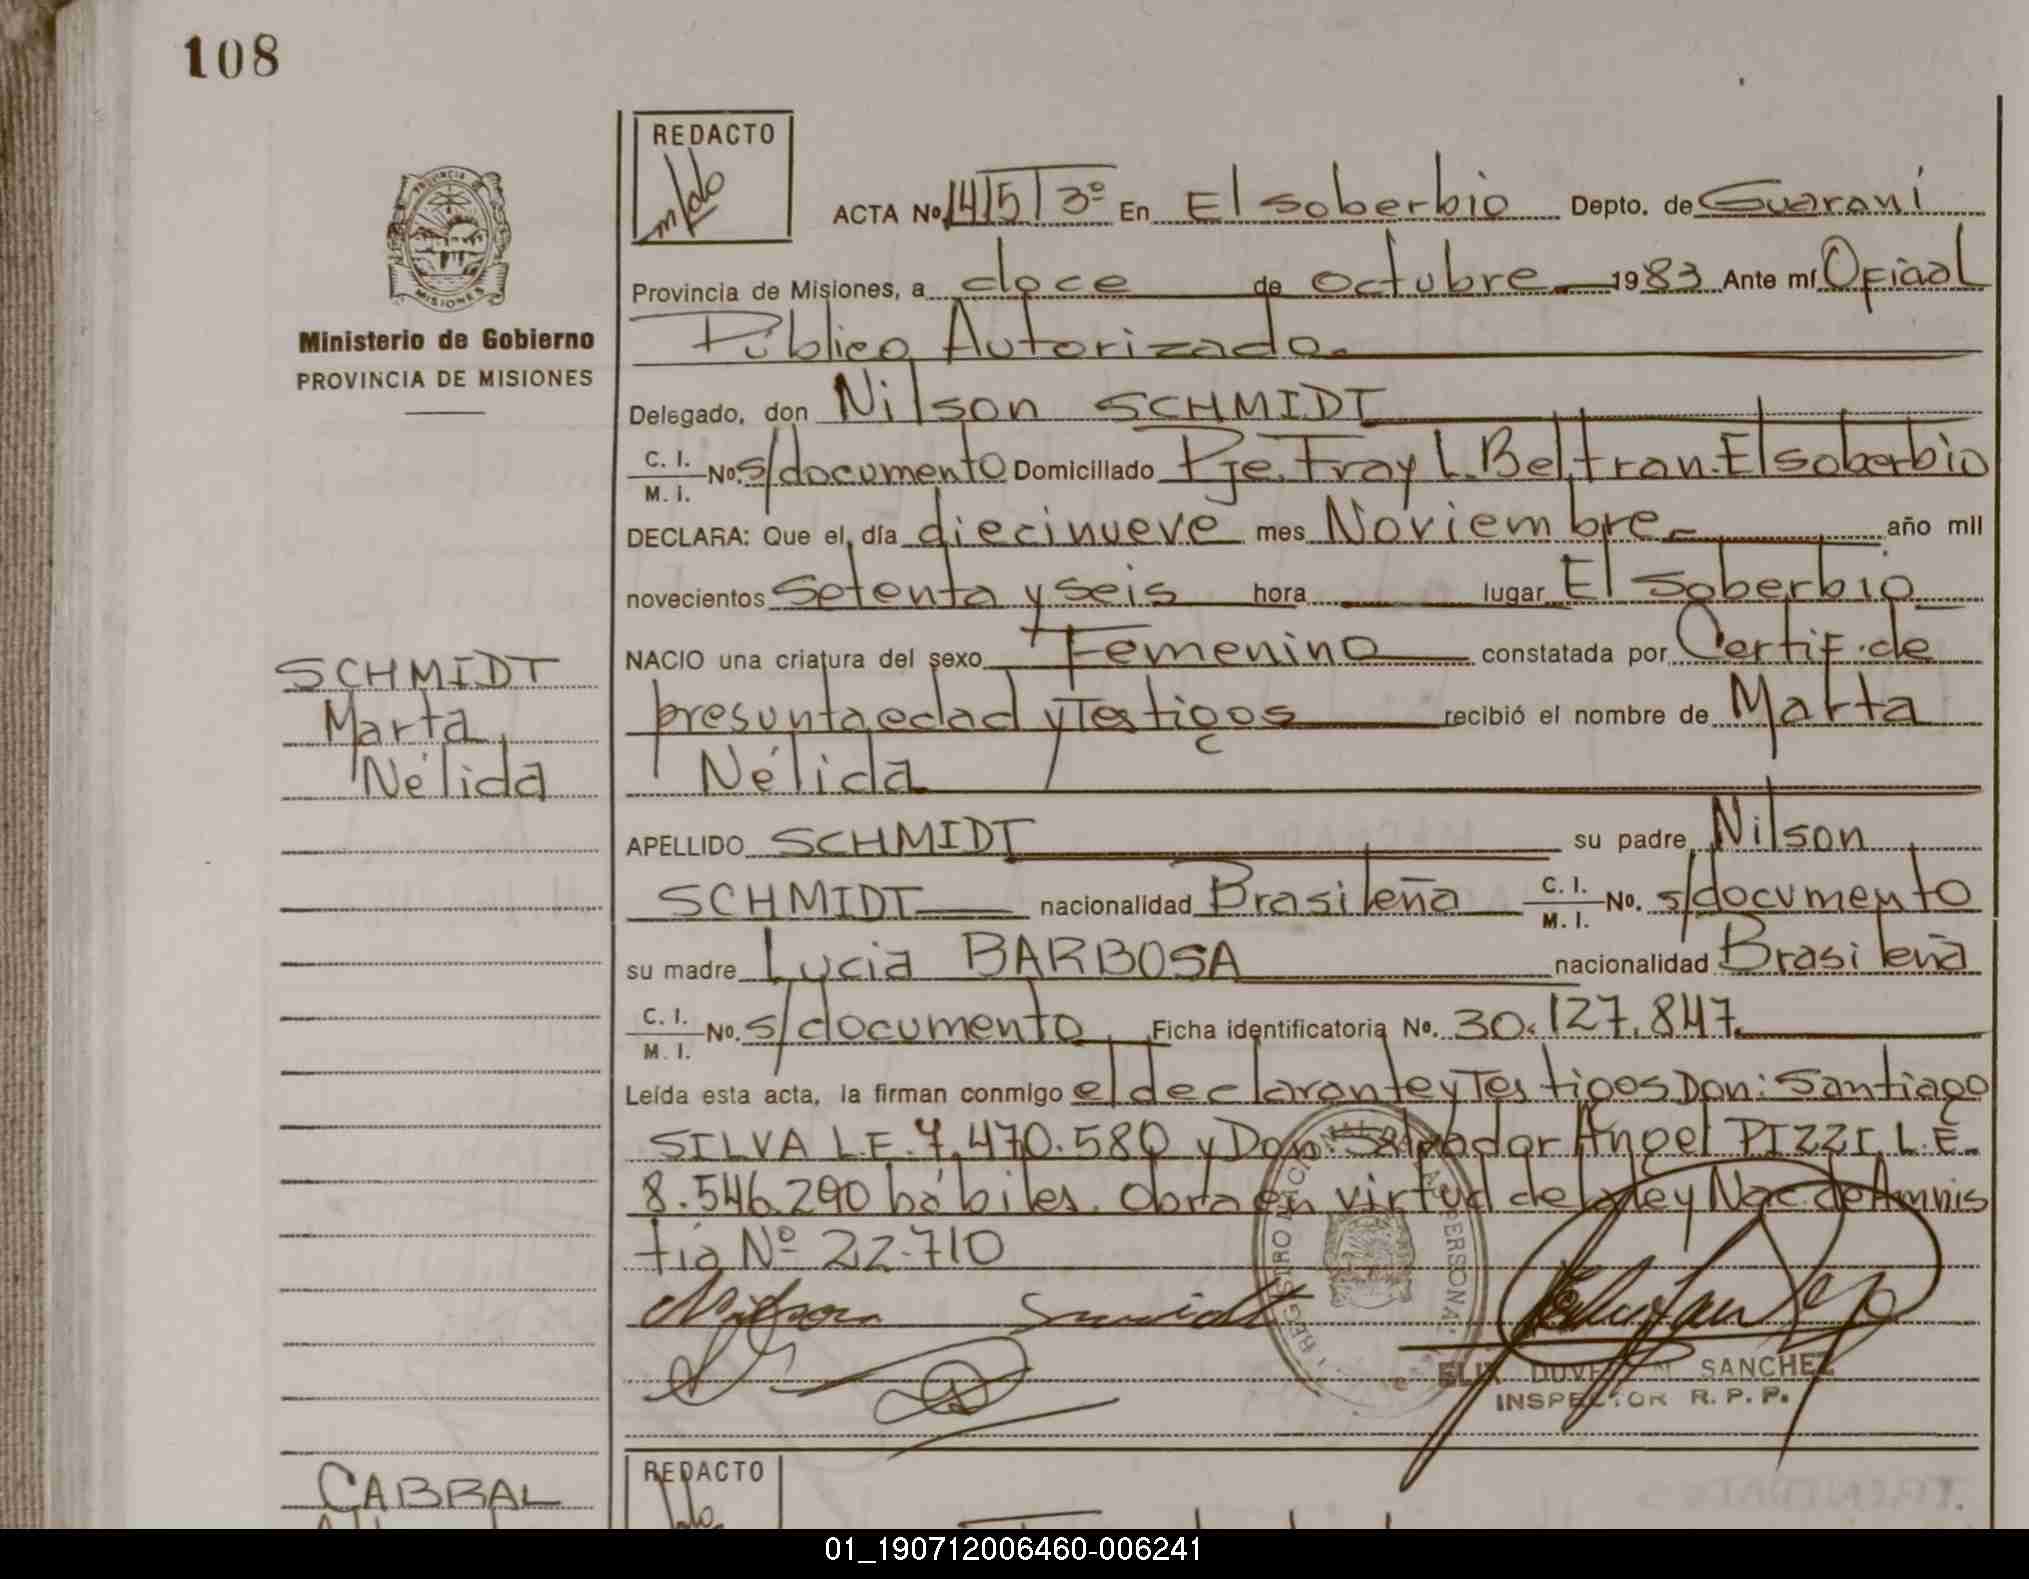 108
REDACTO
ACTA No 415 T 3º En El Soberbio Depto. de Guaraní
Provincia de Misiones, a doce de octubre 1983 Ante mí Oficial
Público Autorizado
Ministerio de Gobierno
PROVINCIA DE MISIONES
Delegado, don Nilson SCHMIDT
C. I. M. I. No. s/documento Domiciliado Pje. Fray L. Beltran. El soberbio
DECLARA: Que el día diecinueve mes Noviembre año mil
novecientos setenta y seis hora lugar El Soberbio
NACIO una criatura del sexo Femenino constatada por Certif. de
presunta edad y Testigos recibió el nombre de Marta
Nélida
SCHMIDT
Marta
Nélida
APELLIDO SCHMIDT su padre Nilson
SCHMIDT nacionalidad Brasileña C. I. M. I. No. s/documento
su madre Lucia BARBOSA nacionalidad Brasileña
C. I. M. I. No. s/documento Ficha identificatoria No. 30.127.847.
Leída esta acta, la firman conmigo el declarante y Testigos Don: Santiago
SILVA L.E. 7.470.580 y Don: Salvador Angel PIZZI L.E.
8.546.290 hábiles. Obra en virtud de la ley Nac. de Amnis
tia Nº 22.710
Nilson Smidt
REGISTRO PERSONA
SANCHEZ
INSPECTOR R. P. P.
CABRAL
REDACTO
01_190712006460-006241